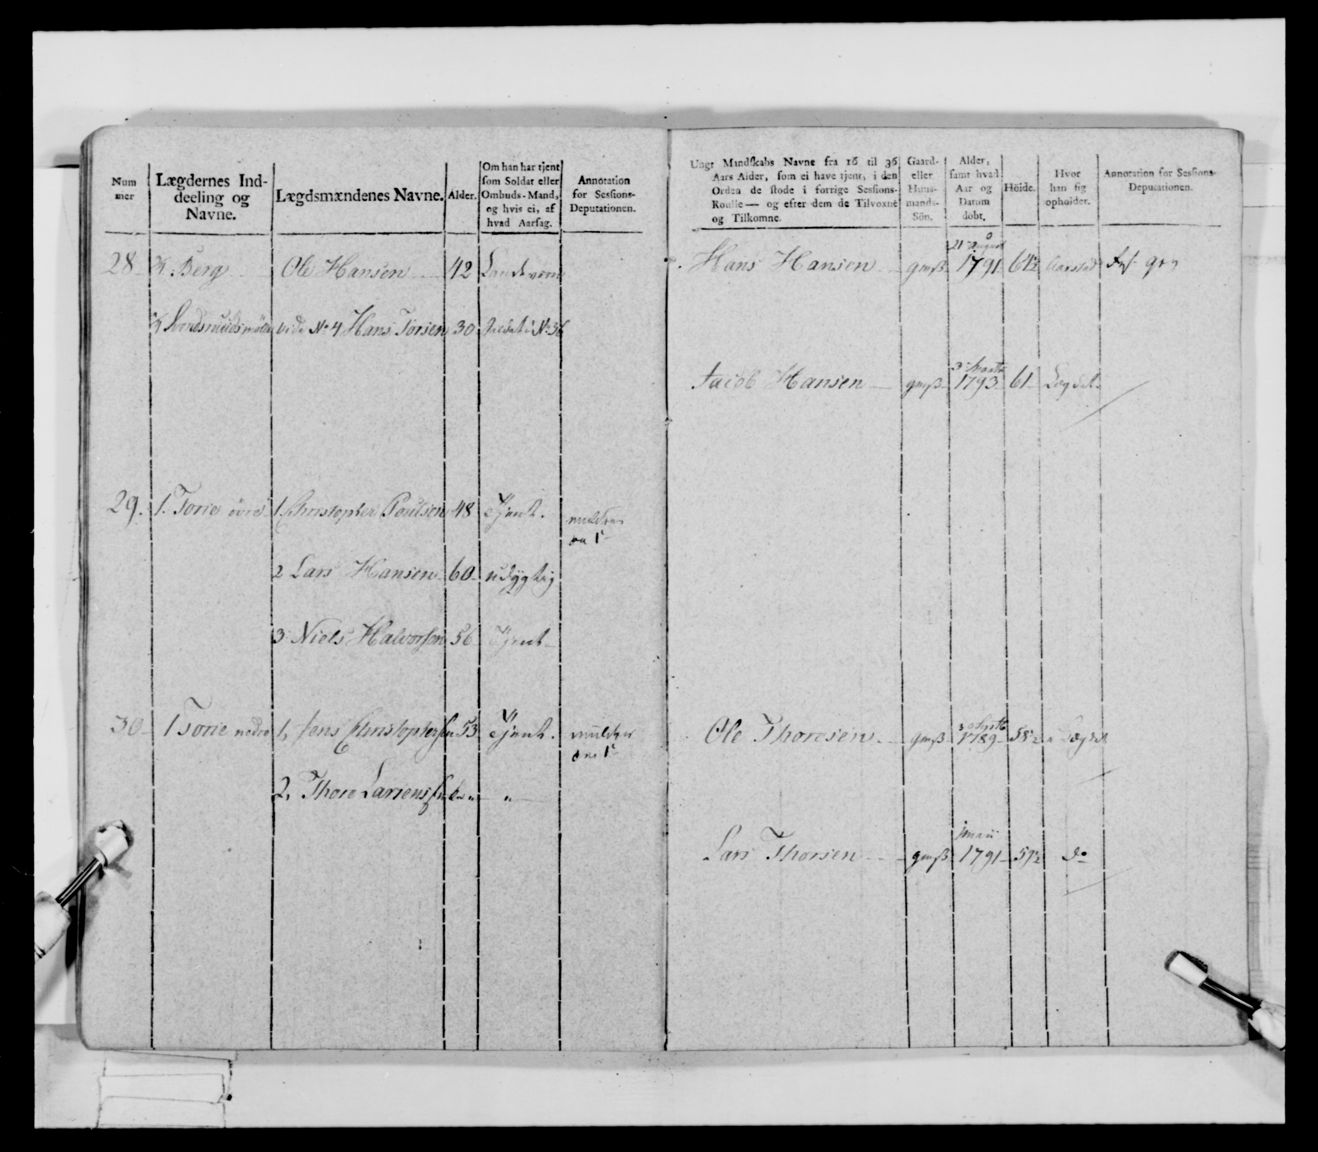 Num
mer
Lægdernes Ind-
deeling og
Navne.
Lægdsmændenes Navne.
Alder.
Om han har tjent
som Soldat eller
Ombuds-Mand,
og hvis ei, af
hvad Aarsag.
Annotation
for Sessions-
Deputationen.
28 ½ Berg Ole Hansen 42 Landeværn
½ vide No 4 Hans Torsen 30 No 36
29. 1. Torie øvre 1 Christopher Poulsen 48 Tjent.
2 Lars Hansen 60 udygtig
3 Niels Halvorsen 56 Tjent
30 1 Torie nedre 1, Jens Christophersen 53 Tjent.
2, Thore Larsens
Ungt Mandskabs Navne fra 16 til 36
Aars Alder, som ei have tjent, i den
Orden de stode i forrige Sessions-
Roulle — og efter dem de Tilvoxne
og Tilkomne.
Gaard-
eller
Huus-
mands-
Sön.
Alder,
samt hvad
Aar og
Datum
döbt.
Höide.
Hvor
han sig
opholder.
Annotation for Sessions-
Deputationen.
21 August
Hans Hansen gmß 1791 64½ Aarstad
Jacob Hansen gmß 1793 61 Lægdet
Ole Thoresen gmß 1789 58½ Lægdet
Lars Thorsen gmß 1791 59½ do